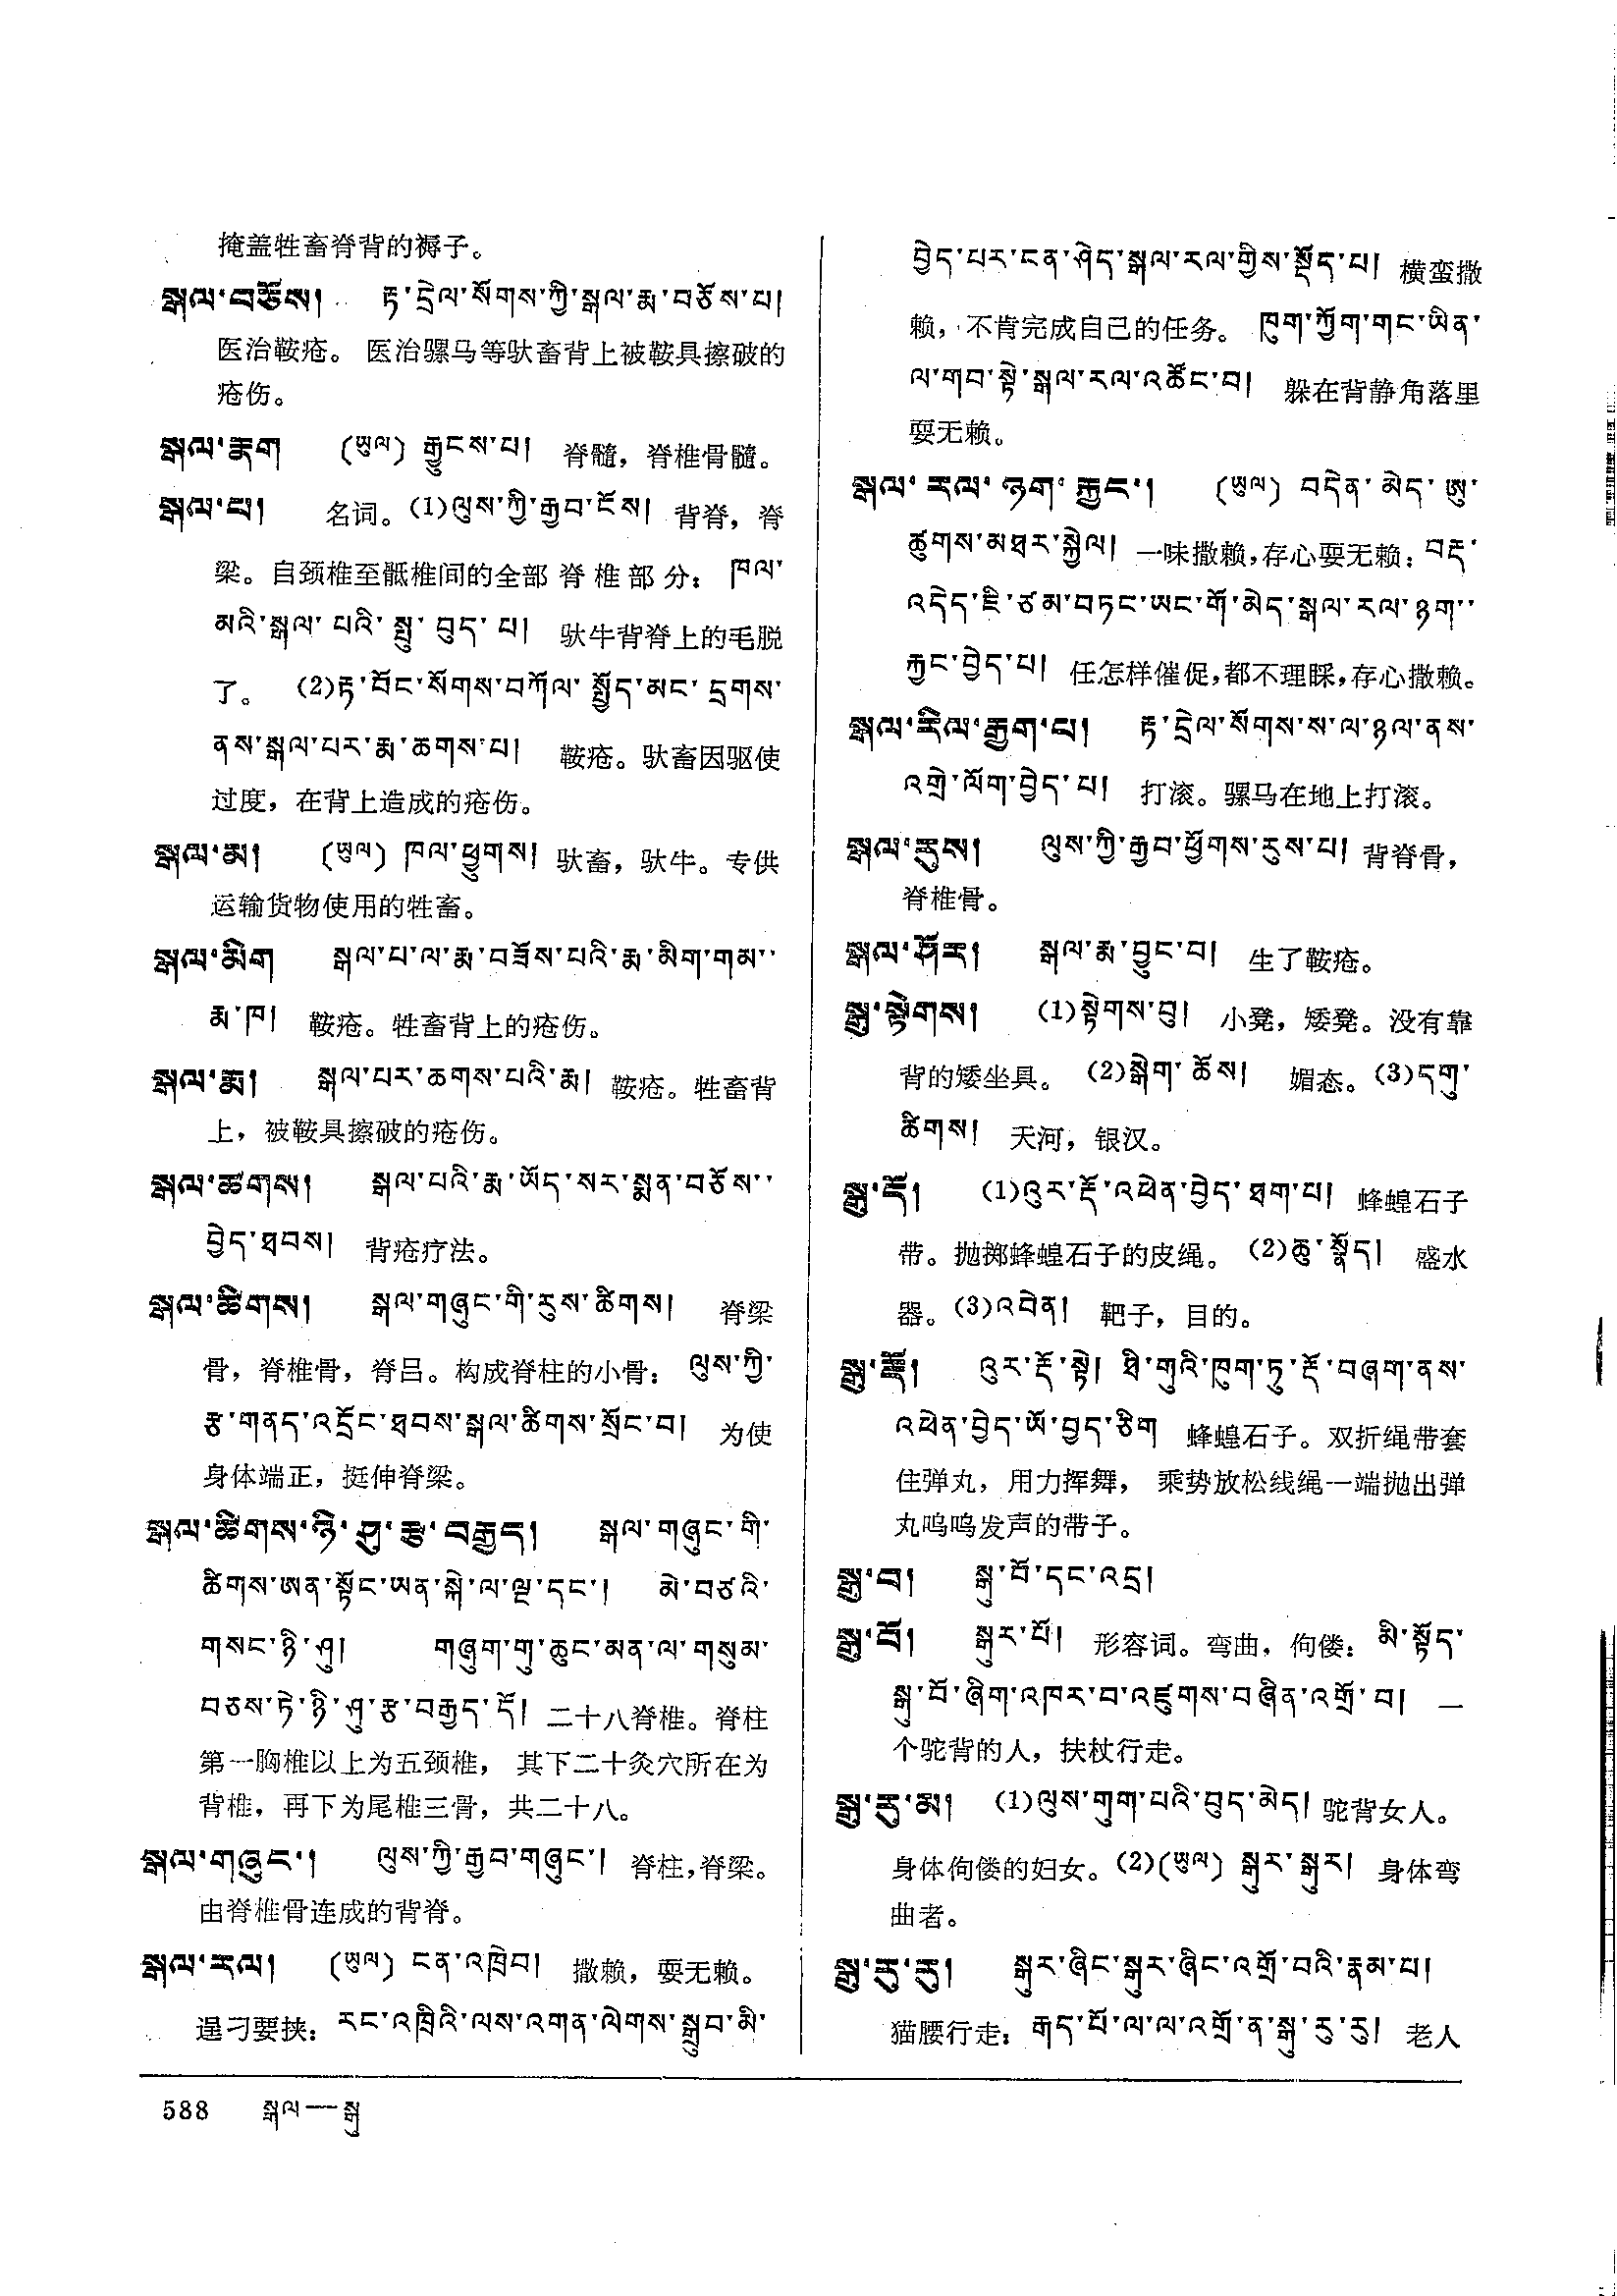 掩盖牲畜脊背的褥子。
སྒལ་བཅོས། རྟ་དྲེལ་སོགས་ཀྱི་སྒལ་རྨ་བཅོས་པ།
医治鞍疮。 医治骡马等驮畜背上被鞍具擦破的
疮伤。
སྒལ་རྣག (ཡུལ) རྒྱུངས་པ། 脊髓，脊椎骨髓。
སྒལ་པ། 名词。(1)ལུས་ཀྱི་རྒྱབ་ངོས། 背脊，脊
梁。自颈椎至骶椎间的全部脊椎部分： ཁལ་
མའི་སྒལ་པའི་སྤུ་བུད་པ། 驮牛背脊上的毛脱
了。 (2)རྟ་བོང་སོགས་བཀོལ་སྤྱོད་མང་དྲགས་
ནས་སྒལ་པར་རྨ་ཆགས་པ། 鞍疮。驮畜因驱使
过度，在背上造成的疮伤。
སྒལ་མ། (ཡུལ) ཁལ་ཕྱུགས། 驮畜，驮牛。专供
运输货物使用的牲畜。
སྒལ་མིག སྒལ་པ་ལ་རྨ་བཟོས་པའི་རྨ་མིག་གམ་་
རྨ་ཁ། 鞍疮。牲畜背上的疮伤。
སྒལ་རྨ། སྒལ་པར་ཆགས་པའི་རྨ། 鞍疮。牲畜背
上，被鞍具擦破的疮伤。
སྒལ་ཚགས། སྒལ་པའི་རྨ་ཡོད་སར་སྨན་བཅོས་་
བྱེད་ཐབས། 背疮疗法。
སྒལ་ཚིགས། སྒལ་གཞུང་གི་རུས་ཚིགས། 脊梁
骨，脊椎骨，脊吕。构成脊柱的小骨： ལུས་ཀྱི་
རྩ་གནད་འདྲོང་ཐབས་སྒལ་ཚིགས་སྲོང་བ། 为使
身体端正，挺伸脊梁。
སྒལ་ཚིགས་ཉི་ཤུ་རྩ་བརྒྱད། སྒལ་གཞུང་གི་
ཚིགས་ཨན་སྟོང་ཡན་སྐེ་ལ་ལྔ་དང་། མེ་བཙའི་
གསང་ཉི་ཤུ། གཞུག་གུ་ཆུང་མན་ལ་གསུམ་
བཅས་ཏེ་ཉི་ཤུ་རྩ་བརྒྱད་དོ། 二十八脊椎。脊柱
第一胸椎以上为五颈椎， 其下二十灸穴所在为
背椎，再下为尾椎三骨，共二十八。
སྒལ་གཞུང་། ལུས་ཀྱི་རྒྱབ་གཞུང་། 脊柱,脊梁。
由脊椎骨连成的背脊。
སྒལ་རལ། (ཡུལ) ངན་འཁྲེབ། 撒赖，耍无赖。
逞刁要挟： རང་འཁྲིའི་ལས་འགན་ལེགས་སྒྲུབ་མི་
བྱེད་པར་ངན་ཤེད་སྒལ་རལ་གྱིས་སྡོད་པ། 横蛮撒
赖，不肯完成自己的任务。 ཁུག་ཀྱོག་གང་ཡིན་
ལ་གབ་སྟེ་སྒལ་རལ་འཚོང་བ། 躲在背静角落里
耍无赖。
སྒལ་རལ་ཉག་རྐྱང་། (ཡུལ) བདེན་མེད་ཨུ་
ཚུགས་མཐར་སྐྱེལ། 一味撒赖,存心耍无赖： བརྡ་
འདེད་ཇི་ཙམ་བཏང་ཡང་གོ་མེད་སྒལ་རལ་ཉག་་
རྐྱང་བྱེད་པ། 任怎样催促,都不理睬,存心撒赖。
སྒལ་རིལ་རྒྱག་པ། རྟ་དྲེལ་སོགས་ས་ལ་ཉལ་ནས་
འགྲེ་ལོག་བྱེད་པ། 打滚。骡马在地上打滚。
སྒལ་རུས། ལུས་ཀྱི་རྒྱབ་ཕྱོགས་རུས་པ། 背脊骨，
脊椎骨。
སྒལ་ཤོར། སྒལ་རྨ་བྱུང་བ། 生了鞍疮。
སྒུ་སྟེགས། (1)སྟེགས་བུ། 小凳，矮凳。没有靠
背的矮坐具。 (2)སྒེག་ཆོས། 媚态。(3)དགུ་
ཚིགས། 天河，银汉。
སྒུ་དོ། (1)འུར་རྡོ་འཕེན་བྱེད་ཐག་པ། 蜂蝗石子
带。抛掷蜂蝗石子的皮绳。 (2)ཆུ་སྣོད། 盛水
器。(3)འབེན། 靶子，目的。
སྒུ་རྡོ། འུར་རྡོ་སྟེ། ཐི་གུའི་ཁུག་ཏུ་རྡོ་བཞག་ནས་
འཕེན་བྱེད་ཡོ་བྱད་ཅིག 蜂蝗石子。双折绳带套
住弹丸，用力挥舞， 乘势放松线绳一端抛出弹
丸呜呜发声的带子。
སྒུ་བ། སྒུ་བོ་དང་འདྲ།
སྒུ་བོ། སྒུར་པོ། 形容词。弯曲，佝偻： མི་སྟོད་
སྒུ་བོ་ཞིག་འཁར་བ་འཛུགས་བཞིན་འགྲོ་བ། 一
个驼背的人，扶杖行走。
སྒུ་རུ་མ། (1)ལུས་གུག་པའི་བུད་མེད། 驼背女人。
身体佝偻的妇女。(2)(ཡུལ) སྒུར་སྒུར། 身体弯
曲者。
སྒུ་རུ་རུ། སྒུར་ཞིང་སྒུར་ཞིང་འགྲོ་བའི་རྣམ་པ།
猫腰行走： རྒད་པོ་ལ་ལ་འགྲོ་ན་སྒུ་རུ་རུ། 老人
588 སྒལ—སྒུ